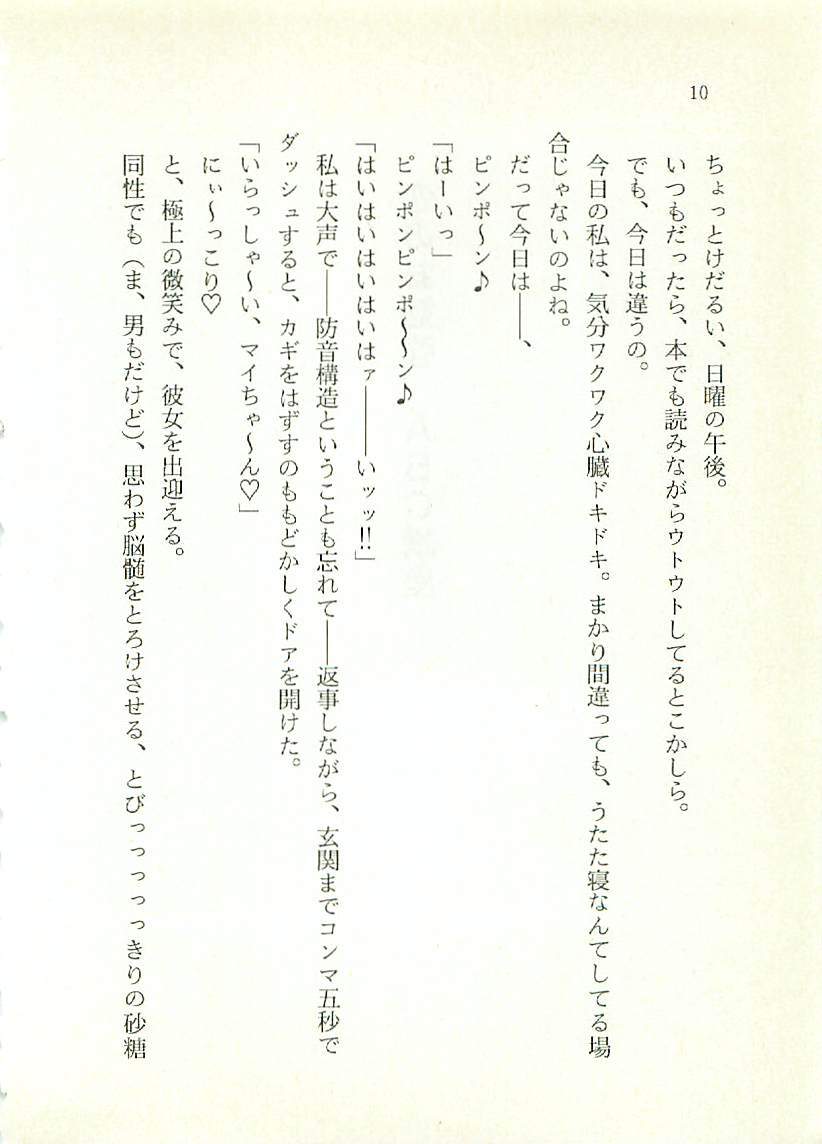 10
ちょっとけだるい、日曜の午後。
いつもだったら、本でも読みながらウトウトしてるとこかしら。
でも、今日は違うの。
今日の私は、気分ワクワク心臓ドキドキ。まかり間違っても、うたた寝なんてしてる場
合じゃないのよね。
だって今日は――、
ピンポ〜ン♪
「はーいっ」
ピンポンピンポ〜〜ン♪
「はいはいはいはいはァ――いッッ!!」
私は大声で――防音構造ということも忘れて――返事しながら、玄関までコンマ五秒で
ダッシュすると、カギをはずすのももどかしくドアを開けた。
「いらっしゃ〜い、マイちゃ〜ん♡」
にぃ〜っこり♡
と、極上の微笑みで、彼女を出迎える。
同性でも（ま、男もだけど）、思わず脳髄をとろけさせる、とびっっっっっきりの砂糖